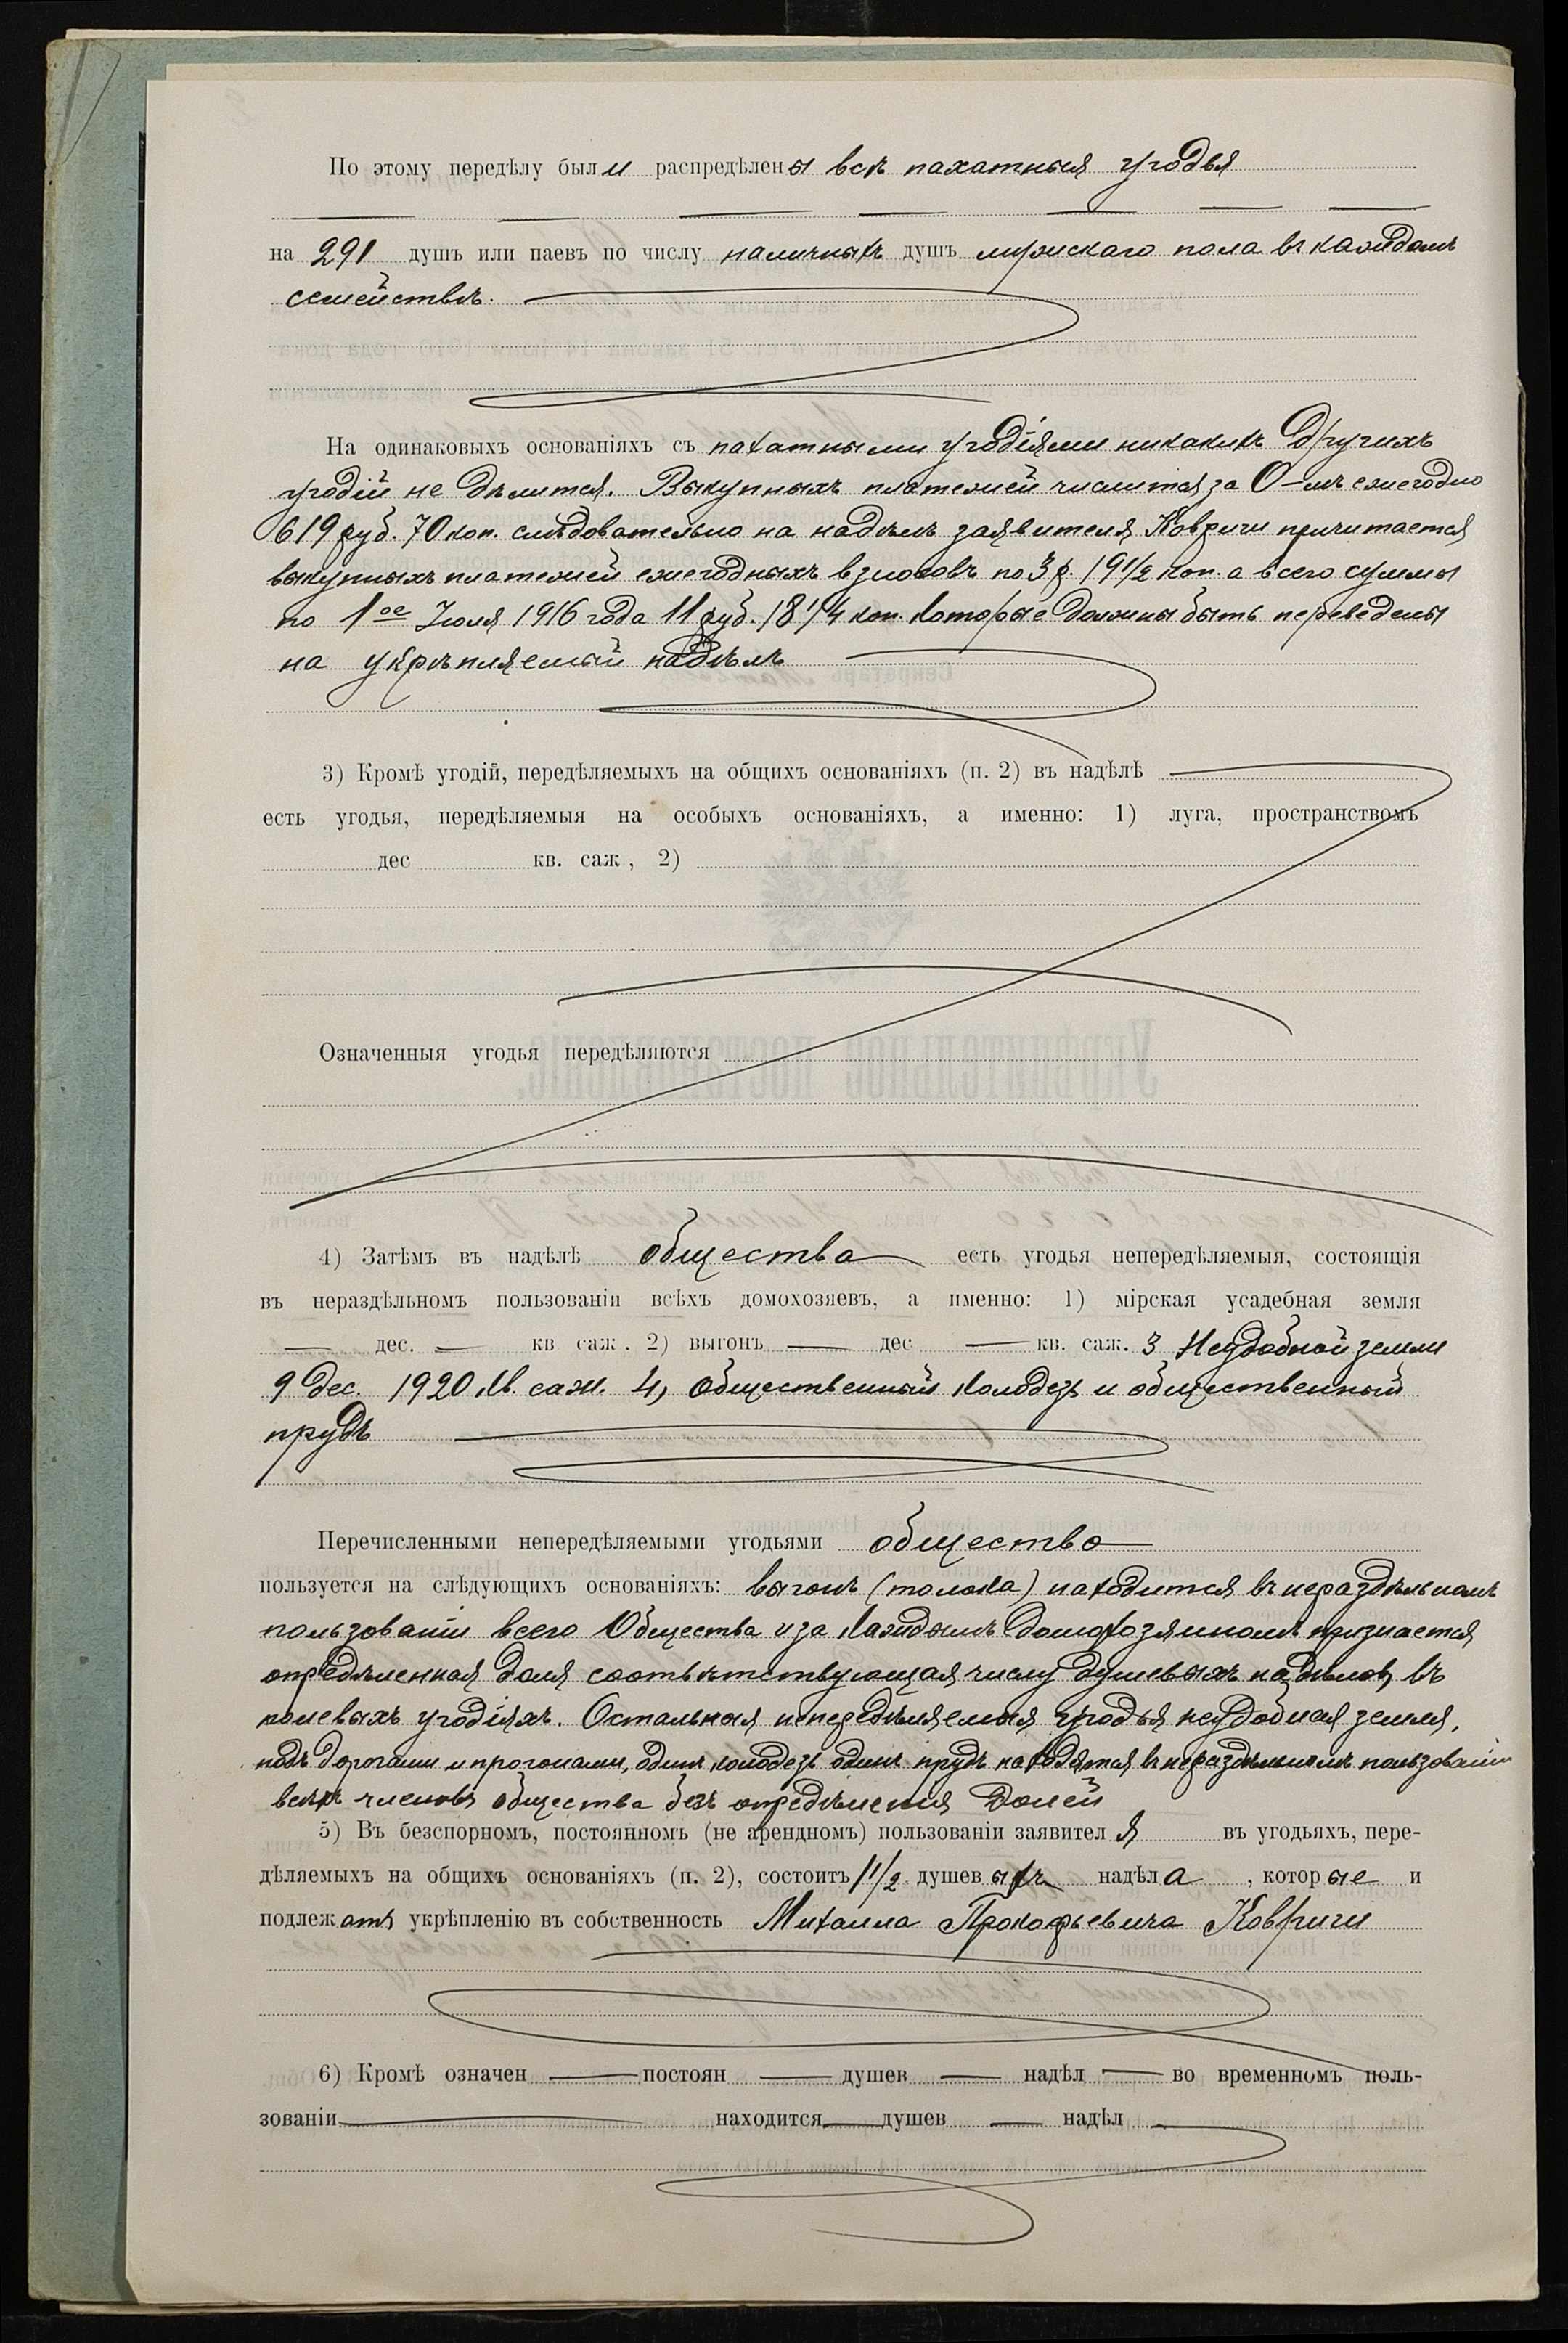 По этому передѣлу были распредѣлены всѣ пахатныя угодья
на 291 душъ или паевъ по числу наличныхъ душъ мужскаго пола въ каждомъ
семействѣ.
На одинаковыхъ основаніяхъ съ пахатными угодіями никакихъ другихъ
угодій не дѣлится. Выкупныхъ платежей числится за О-мъ ежегодно
619 руб. 70 коп. слѣдовательно на надѣлъ заявителя Ковриги причитается
выкупныхъ платежей ежегодныхъ взносовъ по 3 р. 19 1/2 коп. а всего суммы
по 1ое Іюля 1916 года 11 руб. 18 1/4 коп. которые должны быть переведены
на укрѣпляемый надѣлъ
3) Кромѣ угодій, передѣляемыхъ на общихъ основаніяхъ (п. 2) въ надѣлѣ
есть угодья, передѣляемыя на особыхъ основаніяхъ, а именно: 1) луга, пространствомъ
дес кв. саж, 2)
Означенныя угодья передѣляются
4) Затѣмъ въ надѣлѣ общества есть угодья непередѣляемыя, состоящія
въ нераздѣльномъ пользованіи всѣхъ домохозяевъ, а именно: 1) мірская усадебная земля
— дес. — кв саж. 2) выгонъ — дес — кв. саж. 3 Неудобной земли
9 дес. 1920 кв. саж. 4) общественный колодезь и общественный
прудъ
Перечисленными непередѣляемыми угодьями общество
пользуется на слѣдующихъ основаніяхъ: выгонъ (толока) находится въ нераздѣльномъ
пользованіи всего Общества и за каждымъ домохозяиномъ признается
опредѣленная доля соотвѣтствующая числу душевыхъ надѣловъ въ
полевыхъ угодіяхъ. Остальныя непередѣляемыя угодья неудобная земля,
подъ дорогами и прогонами, одинъ колодезь одинъ прудъ находятся въ нераздѣльномъ пользованіи
всѣхъ членовъ общества безъ опредѣленія долей
5) Въ безспорномъ, постоянномъ (не арендномъ) пользованіи заявителя въ угодьяхъ, пере-
дѣляемыхъ на общихъ основаніяхъ (п. 2), состоитъ 1 1/2 душевыхъ надѣла, которые и
подлежатъ укрѣпленію въ собственность Михаила Прокофьевича Ковриги
6) Кромѣ означен — постоян — душев — надѣл — во временномъ поль-
зованіи — находится — душев — надѣл